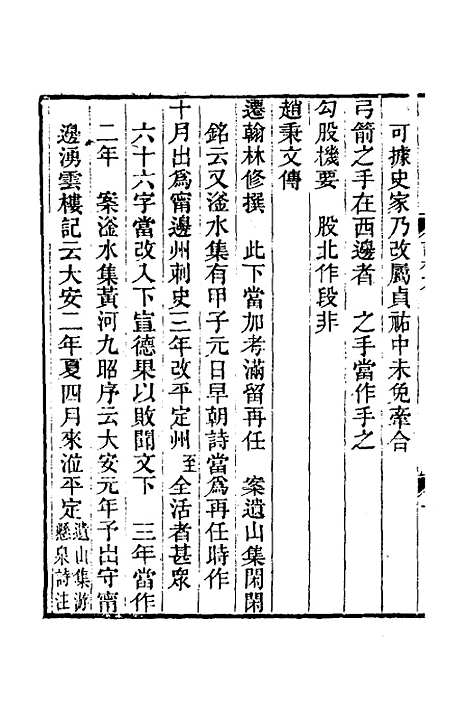 可據史家乃改屬貞祐中未免牽合
弓箭之手在西邊者　之手當作手之
勾股機要　股北作段非
趙秉文傳
遷翰林修撰　此下當加考滿留再任　案遺山集閑閑
銘云又滏水集有甲子元日早朝詩當爲再任時作
十月出爲甯邊州刺史三年改平定州至全活者甚眾
六十六字當改入下宣德果以敗聞文下　三年當作
二年　案滏水集黃河九昭序云大安元年予出守甯
邊湧雲樓記云大安二年夏四月來涖平定遺山集游懸泉詩注